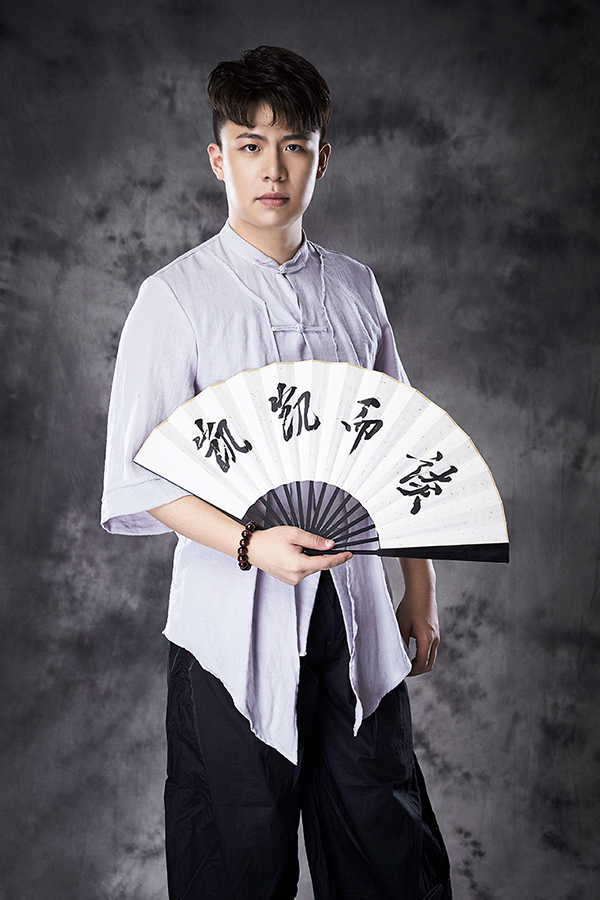 凯凯而谈